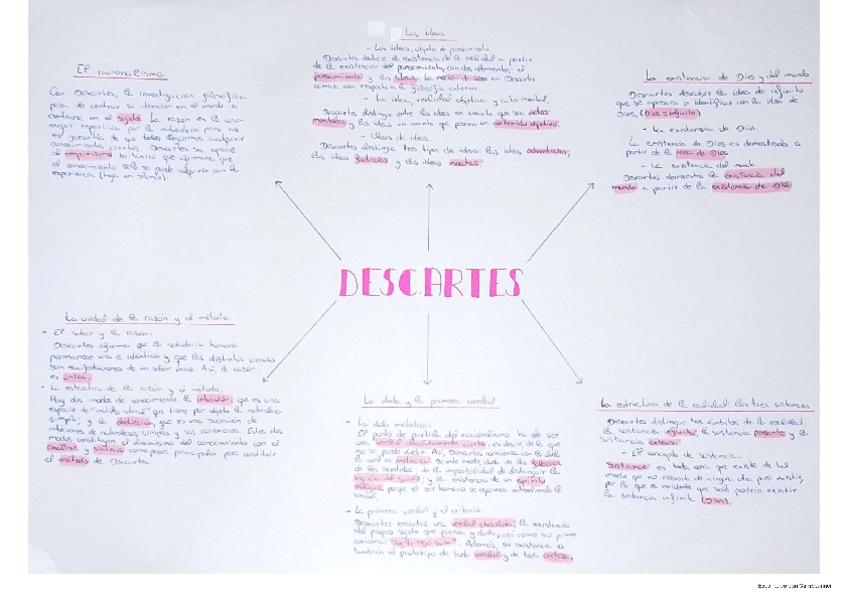 El racionalismo
Con Descartes, la investigación filosófica
pasa de centrar su atención en el mundo a
centrarse en el sujeto. La razón es la cosa
mejor repartida por la naturaleza pero no
es garantía de que todos hagamos cualquier
conocimientos ciertos. Descartes se opone
al empirismo británico que afirmaba que
el conocimiento sólo se puede adquirir con la
experiencia
Las ideas
- Las ideas, objeto de pensamiento
Descartes deduce la existencia de la realidad a partir
de la existencia del pensamiento, con dos elementos: el
pensamiento y las ideas. La noción de idea en Descartes
cambia con respecto a la filosofía anterior.
- La idea, realidad objetiva y acto mental
Descartes distingue entre las ideas en cuanto que son actos
mentales y las ideas en cuanto que poseen un contenido objetivo.
- Clases de ideas
Descartes distingue tres tipos de ideas: las ideas adventicias,
las ideas facticias y las ideas innatas.
La existencia de Dios y del mundo
Descartes descubre la idea de infinito
que se apresura a identificar con la idea de
Dios. (Dios = infinito)
- La existencia de Dios.
La existencia de Dios es demostrada a
partir de la idea de Dios.
- La existencia del mundo
Descartes demuestra la existencia del
mundo a partir de la existencia de Dios.
DESCARTES
La unidad de la razón y el método.
- El saber y la razón.
Descartes afirma que la sabiduría humana
permanece una e idéntica y que las distintas ciencias
son manifestaciones de un saber único. Así, la razón
es única.
- La estructura de la razón y el método.
Hay dos modos de conocimiento: la intuición, que es una
especie de "instinto natural" que tiene por objeto la naturaleza
simple; y la deducción, que es una sucesión de
intuiciones de naturalezas simples y sus conexiones. Estos dos
modos constituyen el dinamismo del conocimiento con el
análisis y síntesis como pasos principales para constituir
el método de Descartes.
La duda y la primera verdad
- La duda metódica.
El punto de partida del racionalismo ha de ser
una verdad absolutamente cierta, es decir, de la que
no se puede dudar. Así, Descartes comienza con la duda
la cual es metódica. De este modo, duda de las falacias
de los sentidos; de la imposibilidad de distinguir la
vigilia del sueño; y la existencia de un espíritu
maligno porque el ser humano se equivoca entendiendo la
verdad.
- La primera verdad y el criterio.
Descartes encontró una verdad absoluta: la existencia
del propio sujeto que piensa y duda, así como su primer
"Cogito ergo sum". Además, su existencia es
también el prototipo de toda verdad y de toda certeza.
La estructura de la realidad: las tres sustancias
Descartes distingue tres ámbitos de la realidad:
la sustancia infinita, la sustancia pensante y la
sustancia extensa.
- El concepto de sustancia.
Sustancia es toda cosa que existe de tal
modo que no necesita de ninguna otra para existir,
por lo que es evidente que sólo podría existir
la sustancia infinita (Dios).